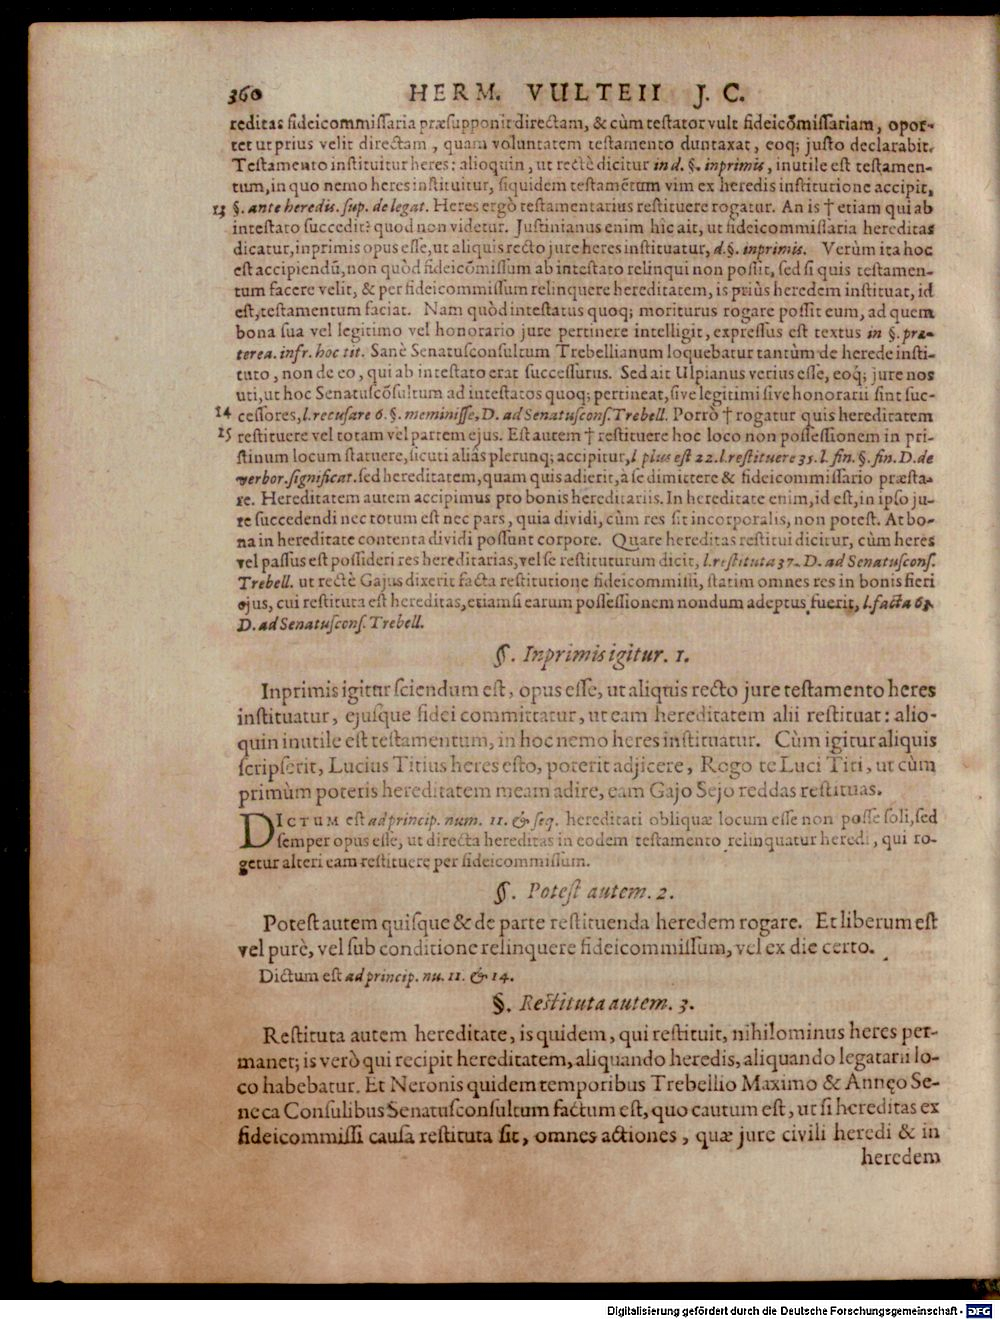 360 HERM. VULTEII J. C.
reditas fideicommissaria præsupponit directam, & cùm testator vult fideicōmissariam, opor-
tet ut prius velit directam, quam voluntatem testamento duntaxat, eoq; justo declarabit.
Testamento instituitur heres: alioquin, ut rectè dicitur in d. §. inprimis, inutile est testamen-
tum, in quo nemo heres instituitur, siquidem testamētum vim ex heredis institutione accipit,
13 §. ante heredis. sup. de legat. Heres ergò testamentarius restituere rogatur. An is † etiam qui ab
intestato succedit? quod non videtur. Justinianus enim hic ait, ut fideicommissaria hereditas
dicatur, inprimis opus esse, ut aliquis recto jure heres instituatur, d. §. inprimis. Verùm ita hoc
est accipiendū, non quòd fideicōmissum ab intestato relinqui non possit, sed si quis testamen-
tum facere velit, & per fideicommissum relinquere hereditatem, is priùs heredem instituat, id
est, testamentum faciat. Nam quòd intestatus quoq; moriturus rogare possit eum, ad quem
bona sua vel legitimo vel honorario jure pertinere intelligit, expressus est textus in §. præ-
terea. infr. hoc tit. Sanè Senatusconsultum Trebellianum loquebatur tantùm de herede insti-
tuto, non de eo, qui ab intestato erat successurus. Sed ait Ulpianus verius esse, eoq́; jure nos
uti, ut hoc Senatuscōsultum ad intestatos quoq; pertineat, sive legitimi sive honorarii sint suc-
14 cessores, l. recusare 6. §. meminisse, D. ad Senatuscons. Trebell. Porrò † rogatur quis hereditatem
15 restituere vel totam vel partem ejus. Est autem † restituere hoc loco non possessionem in pri-
stinum locum statuere, sicuti aliàs plerunq; accipitur, l plus est 22. l. restituere 35. l. fin. §. fin. D. de
verbor. significat. sed hereditatem, quam quis adierit, à se dimittere & fideicommissario præsta-
re. Hereditatem autem accipimus pro bonis hereditariis. In hereditate enim, id est, in ipso ju-
re succedendi nec totum est nec pars, quia dividi, cùm res sit incorporalis, non potest. At bo-
na in hereditate contenta dividi possunt corpore. Quare hereditas restitui dicitur, cùm heres
vel passus est possideri res hereditarias, vel se restituturum dicit, l. restituta 37. D. ad Senatuscons.
Trebell. ut rectè Gajus dixerit facta restitutione fideicommissi, statim omnes res in bonis fieri
ejus, cui restituta est hereditas, etiamsi earum possessionem nondum adeptus fuerit, l. facta 63.
D. ad Senatuscons. Trebell.
§. Inprimis igitur. 1.
Inprimis igitur sciendum est, opus esse, ut aliquis recto jure testamento heres
instituatur, ejusque fidei committatur, ut eam hereditatem alii restituat: alio-
quin inutile est testamentum, in hoc nemo heres instituatur. Cùm igitur aliquis
scripserit, Lucius Titius heres esto, poterit adjicere, Rogo te Luci Titi, ut cùm
primùm poteris hereditatem meam adire, eam Gajo Sejo reddas restituas.
DICTUM est ad princip. num. 11. & seq. hereditati obliquæ locum esse non posse soli, sed
semper opus esse, ut directa hereditas in eodem testamento relinquatur heredi, qui ro-
getur alteri eam restituere per fideicommissum.
§. Potest autem. 2.
Potest autem quisque & de parte restituenda heredem rogare. Et liberum est
vel purè, vel sub conditione relinquere fideicommissum, vel ex die certo.
Dictum est ad princip. nu. 11. & 14.
§. Restituta autem. 3.
Restituta autem hereditate, is quidem, qui restituit, nihilominus heres per-
manet; is verò qui recipit hereditatem, aliquando heredis, aliquando legatarii lo-
co habebatur. Et Neronis quidem temporibus Trebellio Maximo & Annęo Se-
neca Consulibus Senatusconsultum factum est, quo cautum est, ut si hereditas ex
fideicommissi causa restituta sit, omnes actiones, quæ jure civili heredi & in
heredem
Digitalisierung gefördert durch die Deutsche Forschungsgemeinschaft - DFG